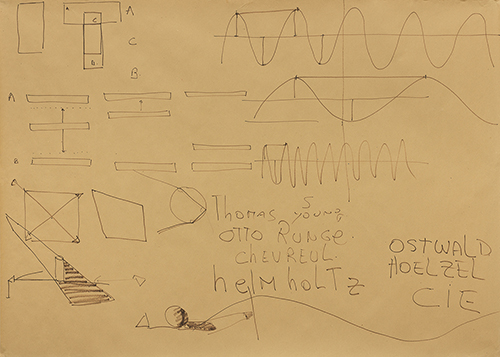 A
C
A
C
D
B
A
B
THOMAS YOUNG
OTTO RUNGE.
CHEVREUL.
HELMHOLTZ
OSTWALD
HOELZEL
CIE